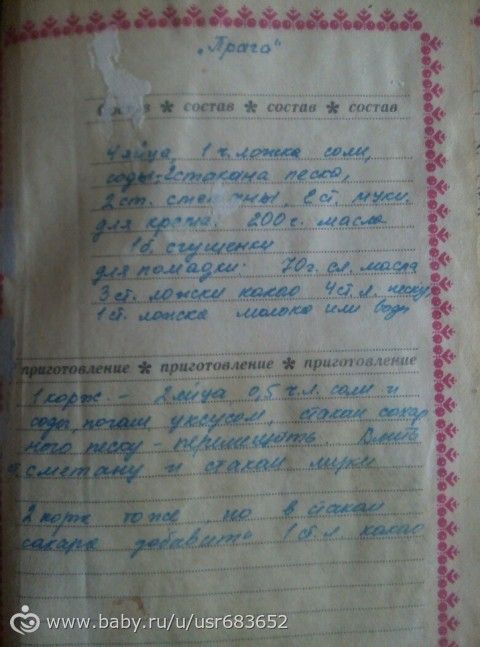 „Прага"
состав * состав * состав * состав
4 яйца, 1 ч. ложка соли,
соды, 2 стакана песка,
2 ст. сметаны, 2 ст. муки.
для крема: 200 г. масла
1 б. сгущенки
для помадки: 70 г. сл. масла
3 ст. ложски какао 4 ст. л. песку,
1 ст. ложска молока или воды
приготовление * приготовление * приготовление
1 корж – 2 яйца 0,5 ч.л. соли и
соды, погаш уксусом, стакан сахар
ного песку – перемешать. Влить
сметану и стакан муки
2 корж тоже но в стакан
сахара добавить 1 ст. л. какао
www.baby.ru/u/usr683652